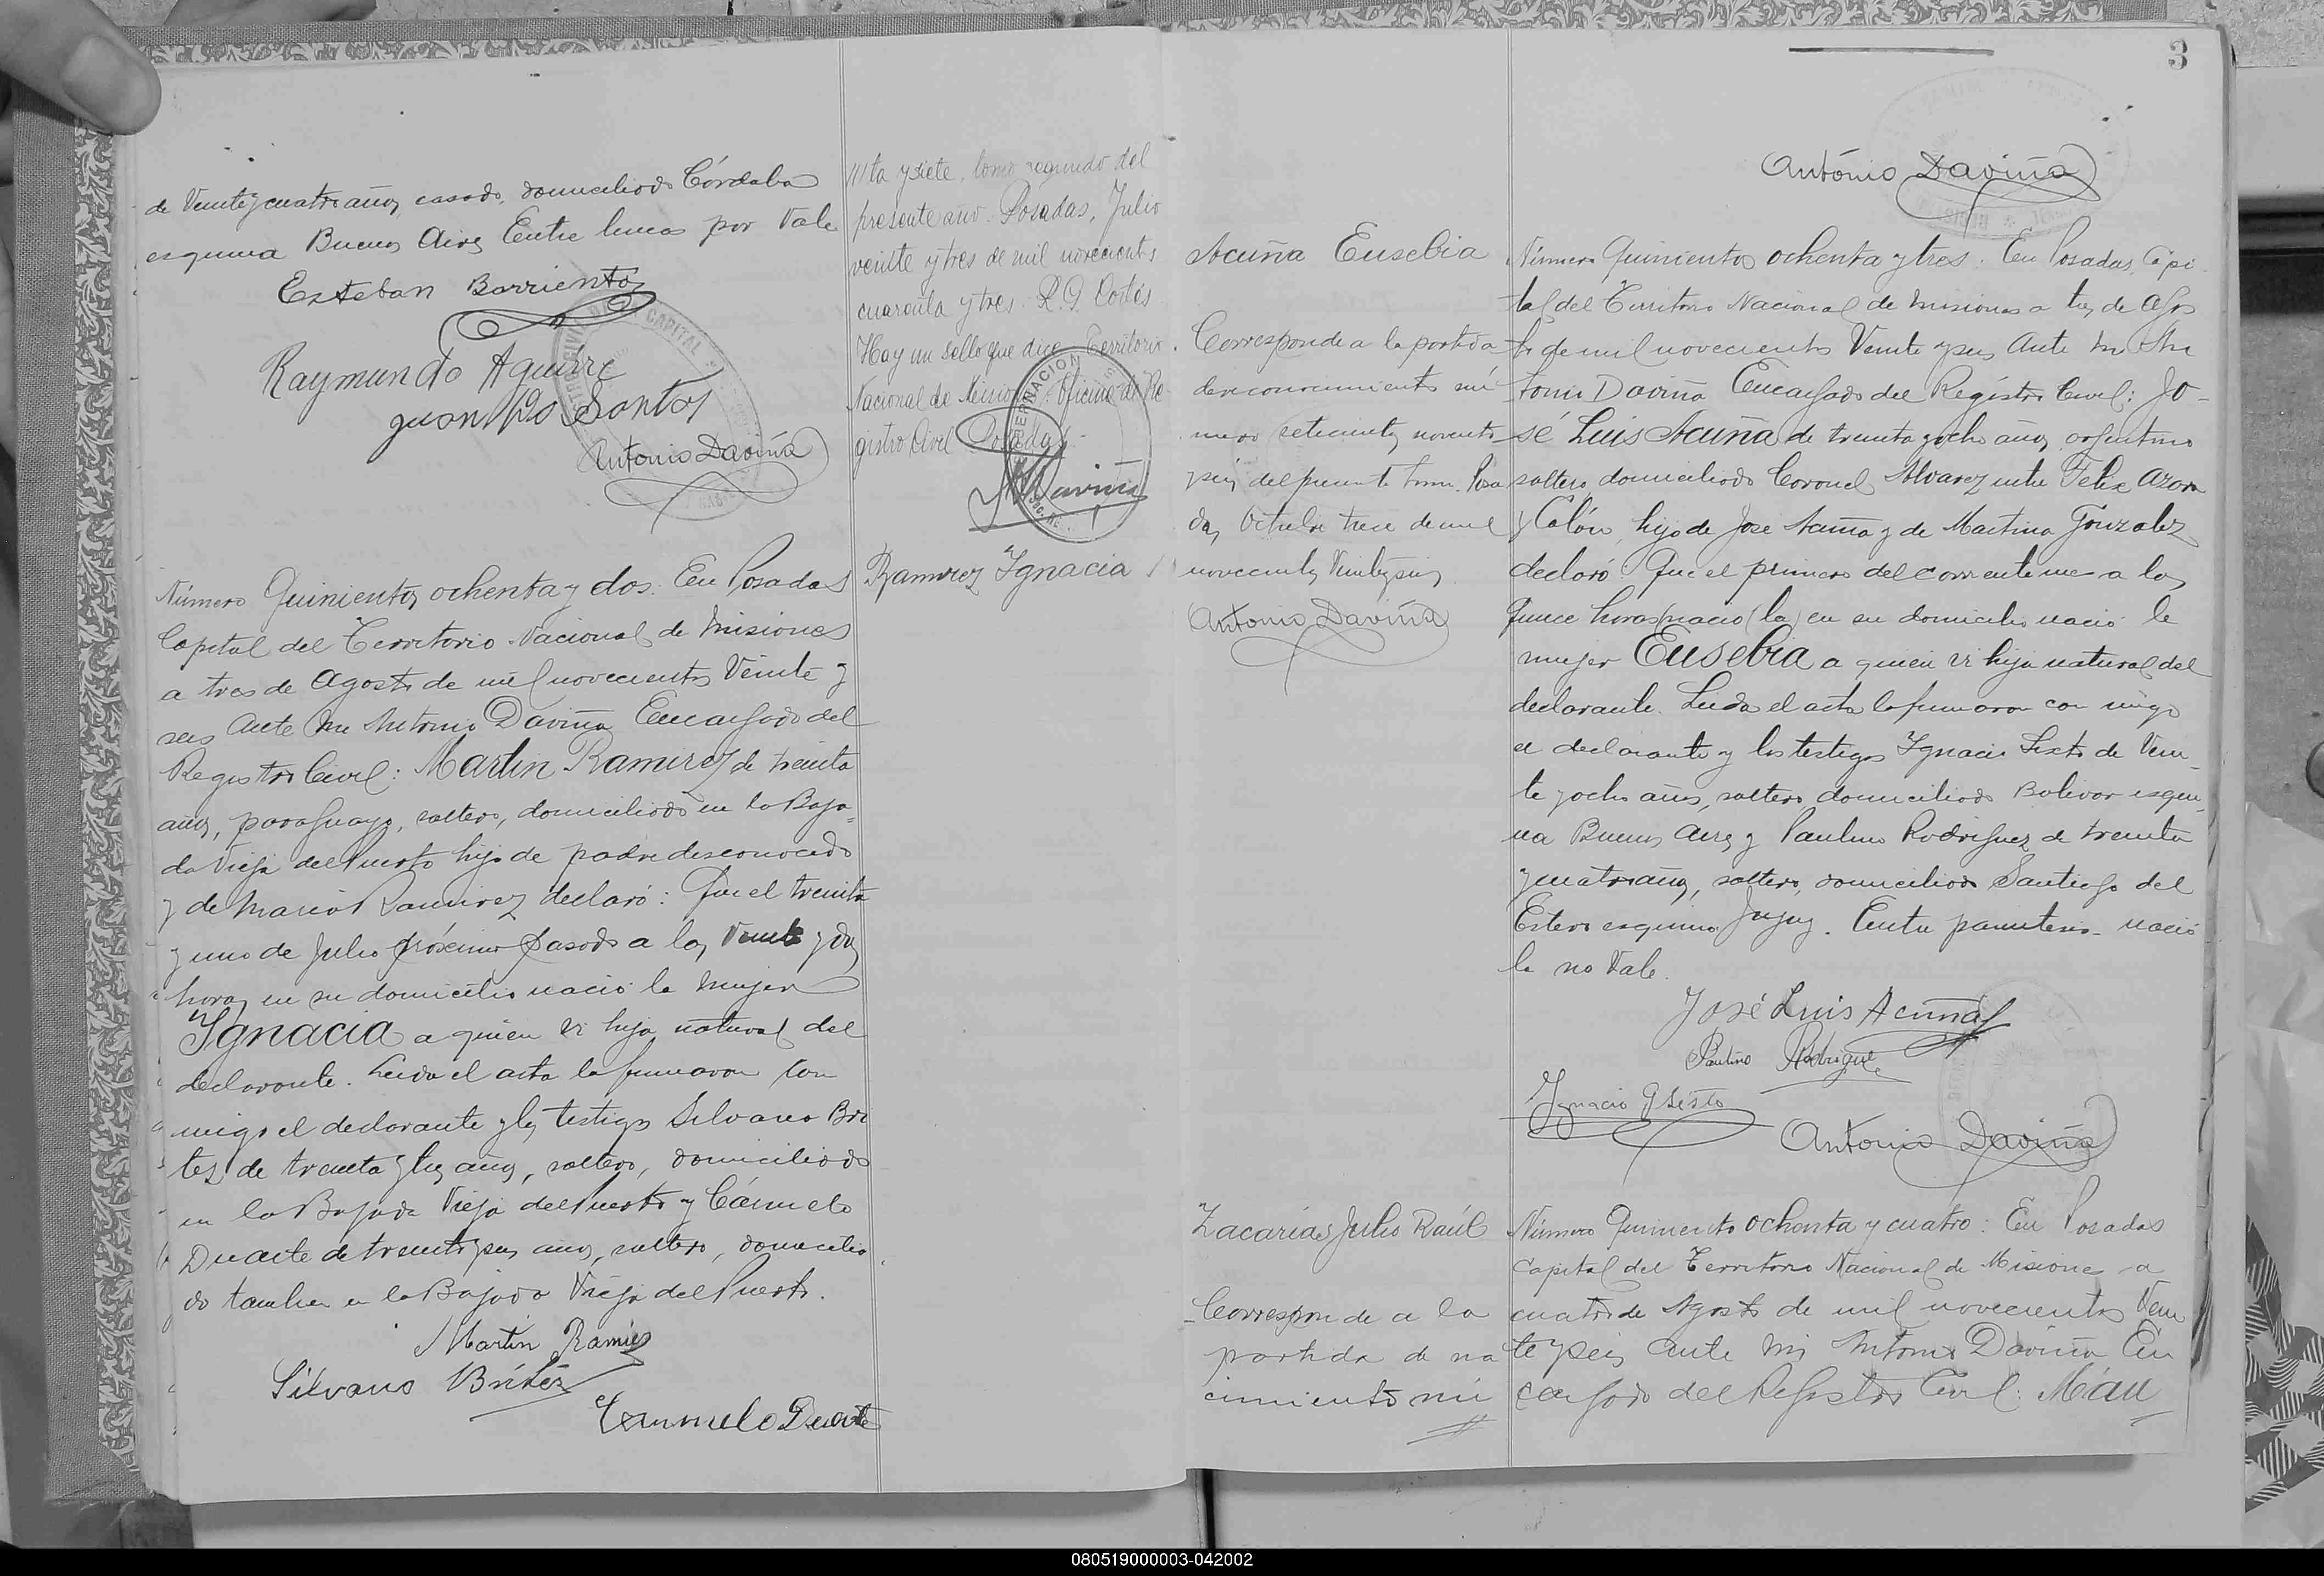 de Veinte y cuatro años, casado, domiciliado Córdoba
esquina Buenos Aires Entre lineas por Vale
Esteban Barrientos
Raymundo Aguirre
Juan Ps Santos
Antonio Daviña
Número Quinientos ochenta y dos: En Posadas
Capital del Territorio Nacional de Misiones
a tres de Agosto de mil novecientos Veinte y
seis Ante mi Antonio Daviña Encargado del
Registro Civil: Martin Ramirez de treinta
años, paraguayo, soltero, domiciliado en la Baja-
da Vieja del Puerto hijo de padre desconocido
y de Maria Ramirez declaró: Que el treinta
y uno de Julio próximo pasado a las Veinte y dos
horas en su domicilio nació la mujer
Ignacia a quien vi hija natural del
declarante. Leida el acta la firmaron con
migo el declarante y los testigos Silvano Bri
tez de treinta y tres años, soltero, domiciliado
en la Bajada Vieja del Puerto y Cármelo
Duarte de treinta y seis años, soltero, domicilia
do tambien en la Bajada Vieja del Puerto.
Martin Ramirez
Silvano Britez
Carmelo Duarte
///ta y siete, tomo segundo del
presente año. Posadas, Julio
veinte y tres de mil novecientos
cuarenta y tres. R. G. Cortés
Hay un sello que dice: Territorio
Nacional de Misiones. Oficina del Re-
gistro Civil Posadas.-
Daviña
Ramirez Ignacia
3
Antonio Daviña
Acuña Eusebia
Corresponde a la partida
de reconocimiento nú
mero setecientos noventa
y seis del presente tomo. Posa
das, Octubre trece de mil
novecientos Veinte y seis
Antonio Daviña
Número Quinientos ochenta y tres: En Posadas, Capi
tal del Territorio Nacional de Misiones a tres de Agos
to de mil novecientos Veinte y seis Ante mi An
tonio Daviña Encargado del Registro Civil: Jo-
sé Luis Acuña de treinta y ocho años, argentino
soltero, domiciliado Coronel Alvarez entre Felix Azara
y Colón, hijo de José Acuña y de Martina Gonzalez
declaró: Que el primero del corriente mes a las
quince horas (nació la) en su domicilio nació la
mujer Eusebia a quien vi hija natural del
declarante. Leida el acta la firmaron con migo
el declarante y los testigos Ignacio Sixto de Vein-
te y ocho años, soltero, domiciliado Bolivar esqui-
na Buenos Aires y Paulino Rodriguez de treinta
y cuatro años, soltero, domiciliado Santiago del
Estero esquina Jujuy. Entre parentesis- nació
la no Vale.
José Luis Acuña
Paulino Rodrigue
Ignacio G Sesto
Antonio Daviña
Zacarías Julio Raúl
Corresponde a la
partida de na
cimiento nú
Número Quinientos ochenta y cuatro: En Posadas
Capital del Territorio Nacional de Misiones a
cuatro de Agosto de mil novecientos Vein
te y seis Ante mi Antonio Daviña En
cargado del Registro Civil: Mau
080519000003-042002